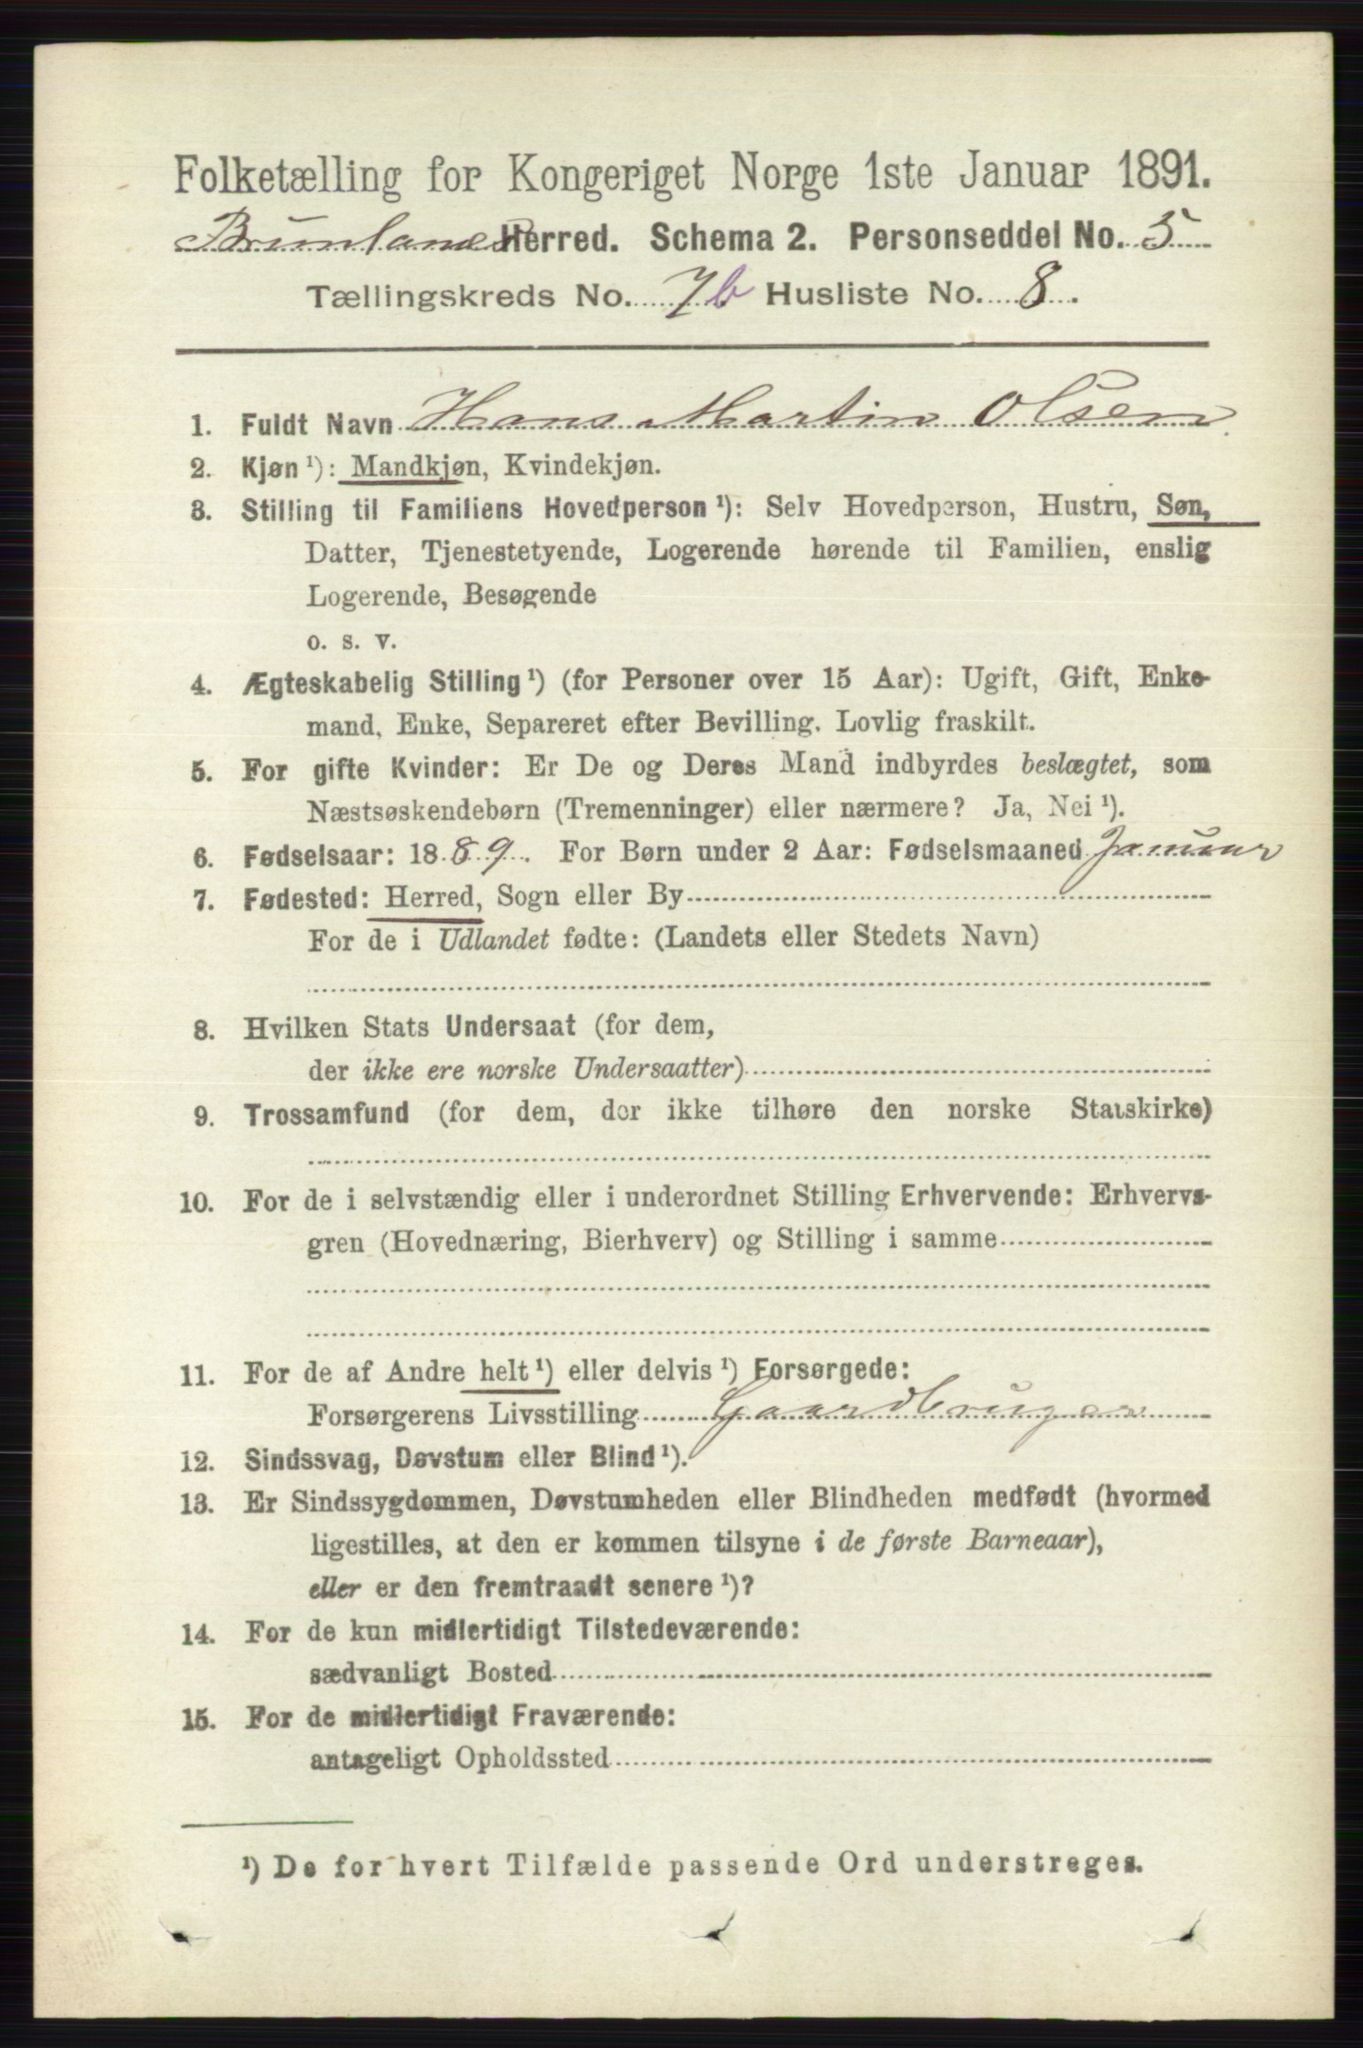 Folketælling for Kongeriget Norge 1ste Januar 1891.
Brunlanes Herred. Schema 2. Personseddel No. 5
Tællingskreds No. 7b Husliste No. 8.
1. Fuldt Navn Hans Martin Olsen
2. Kjøn ¹): Mandkjøn, Kvindekjøn.
3. Stilling til Familiens Hovedperson ¹): Selv Hovedperson, Hustru, Søn,
Datter, Tjenestetyende, Logerende hørende til Familien, enslig
Logerende, Besøgende
o. s. v.
4. Ægteskabelig Stilling ¹) (for Personer over 15 Aar): Ugift, Gift, Enke-
mand, Enke, Separeret efter Bevilling. Lovlig fraskilt.
5. For gifte Kvinder: Er De og Deres Mand indbyrdes beslægtet, som
Næstsøskendebørn (Tremenninger) eller nærmere? Ja, Nei ¹).
6. Fødselsaar: 1889. For Børn under 2 Aar: Fødselsmaaned Januar
7. Fødested: Herred, Sogn eller By
For de i Udlandet fødte: (Landets eller Stedets Navn)
8. Hvilken Stats Undersaat (for dem,
der ikke ere norske Undersaatter)
9. Trossamfund (for dem, der ikke tilhøre den norske Statskirke)
10. For de i selvstændig eller i underordnet Stilling Erhvervende: Erhvervs-
gren (Hovednæring, Bierhverv) og Stilling i samme
11. For de af Andre helt ¹) eller delvis ¹) Forsørgede:
Forsørgerens Livsstilling Gaardbruger
12. Sindssvag, Døvstum eller Blind ¹).
13. Er Sindssygdommen, Døvstumheden eller Blindheden medfødt (hvormed
ligestilles, at den er kommen tilsyne i de første Barneaar),
eller er den fremtraadt senere ¹)?
14. For de kun midlertidigt Tilstedeværende:
sædvanligt Bosted
15. For de midlertidigt Fraværende:
antageligt Opholdssted
¹) De for hvert Tilfælde passende Ord understreges.